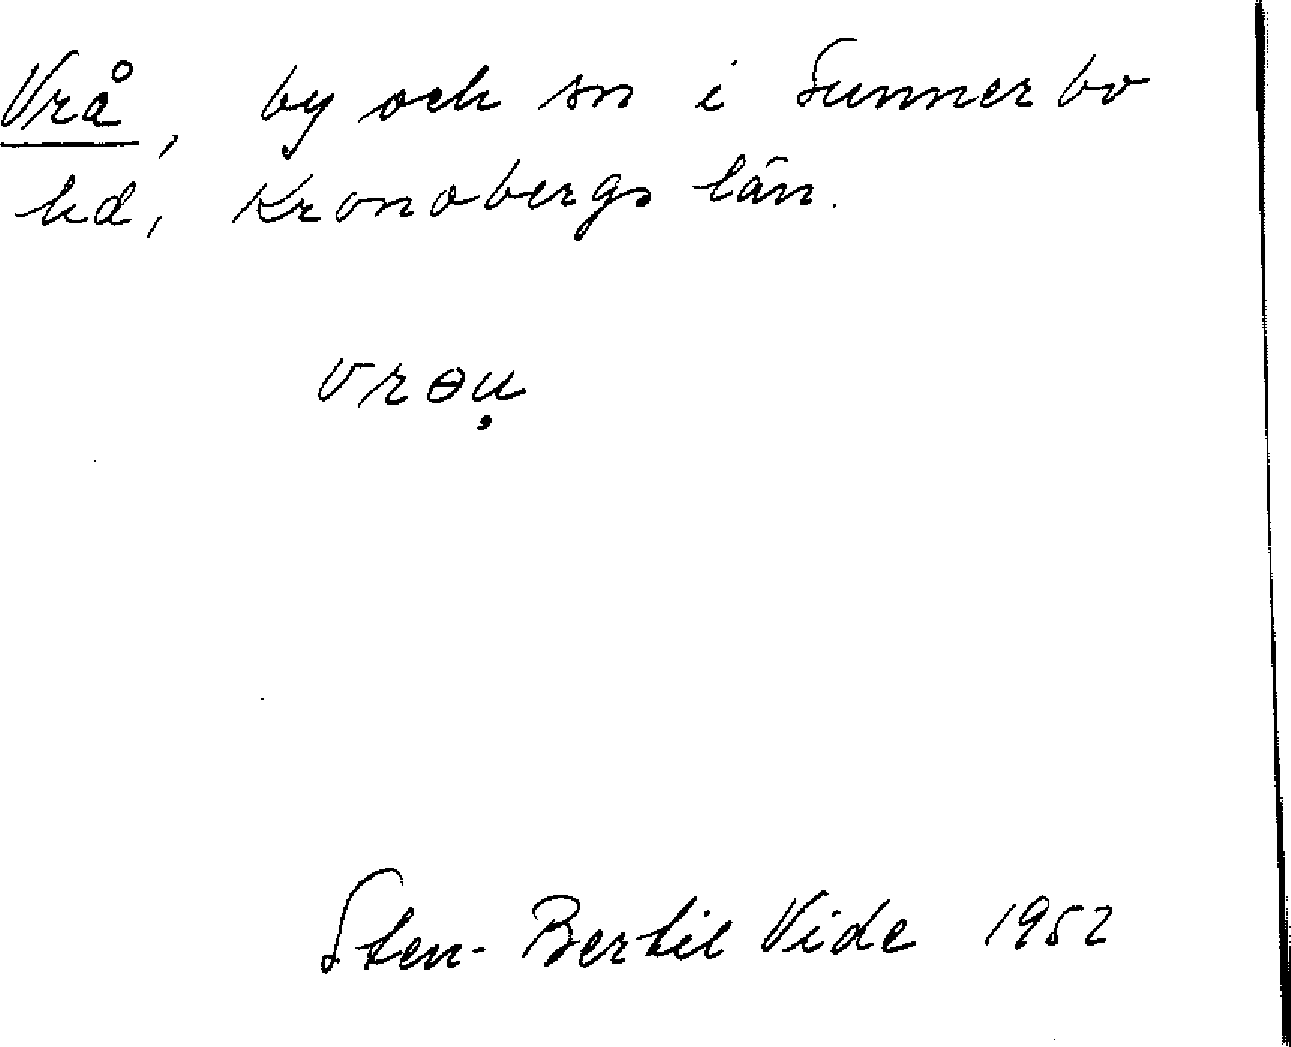 Vrå, by och sn i Sunnerbo
hd, Kronobergs län.
vrɵu̡
Sten-Bertil Vide 1952